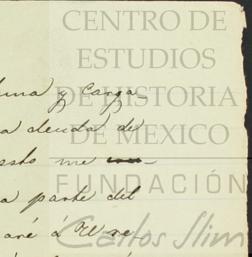 CENTRO DE
ESTUDIOS
DE HISTORIA
DE MEXICO
FUNDACIÓN
Carlos Slim
y Carga-
a deuda de
me
a parte del
aré á